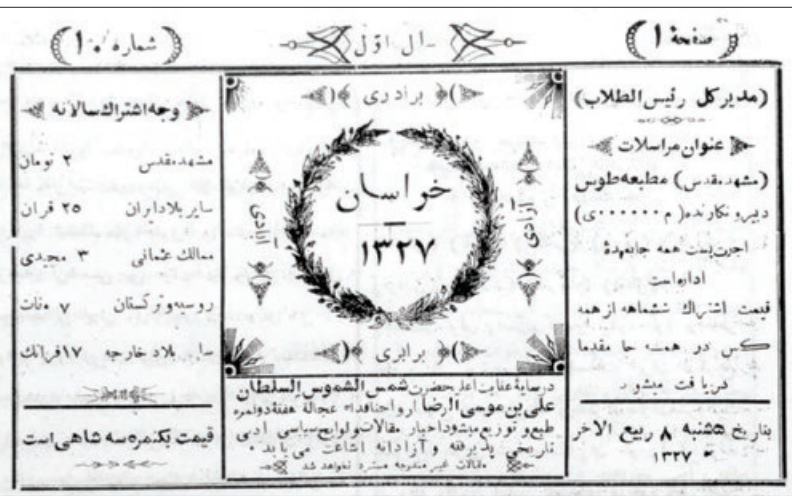 صفحهٔ ۱
سال اوّل
شماره ۱۰
(مدیر کل رئیس الطلاب)
عنوان مراسلات
(مشهد مقدس) مطبعه طوس
دبیر و نگارنده (م۰۰۰۰۰۰ی)
اجرت پست همه جا بعهدهٔ
اداره است
قیمت اشتراک ششماهه از همه
کس در همه جا مقدما
دریافت میشود
بتاریخ شنبه ۸ ربیع الاخر
۱۳۲۷
برادری
آزادی
خراسان
۱۳۲۷
آبادی
برابری
در سایهٔ عنایت اعلیحضرت شمس الشموس السلطان
علی بن موسی الرضا ارواحنافداه عجالة هفتهٔ دو نمره
طبع و توزیع میشود اخبار مقالات و لوایح سیاسی ادبی
تاریخی پذیرفته و آزادانه اشاعت می یابد
مقالات غیر مندرجه مسترد نخواهد شد
وجه اشتراک سالانه
مشهد مقدس ۲ تومان
سایر بلاد ایران ۲۵ قران
ممالک عثمانی ۳ مجدی
روسیه و ترکستان ۷ منات
سایر بلاد خارجه ۱۷ فرانک
قیمت یکنمره سه شاهی است